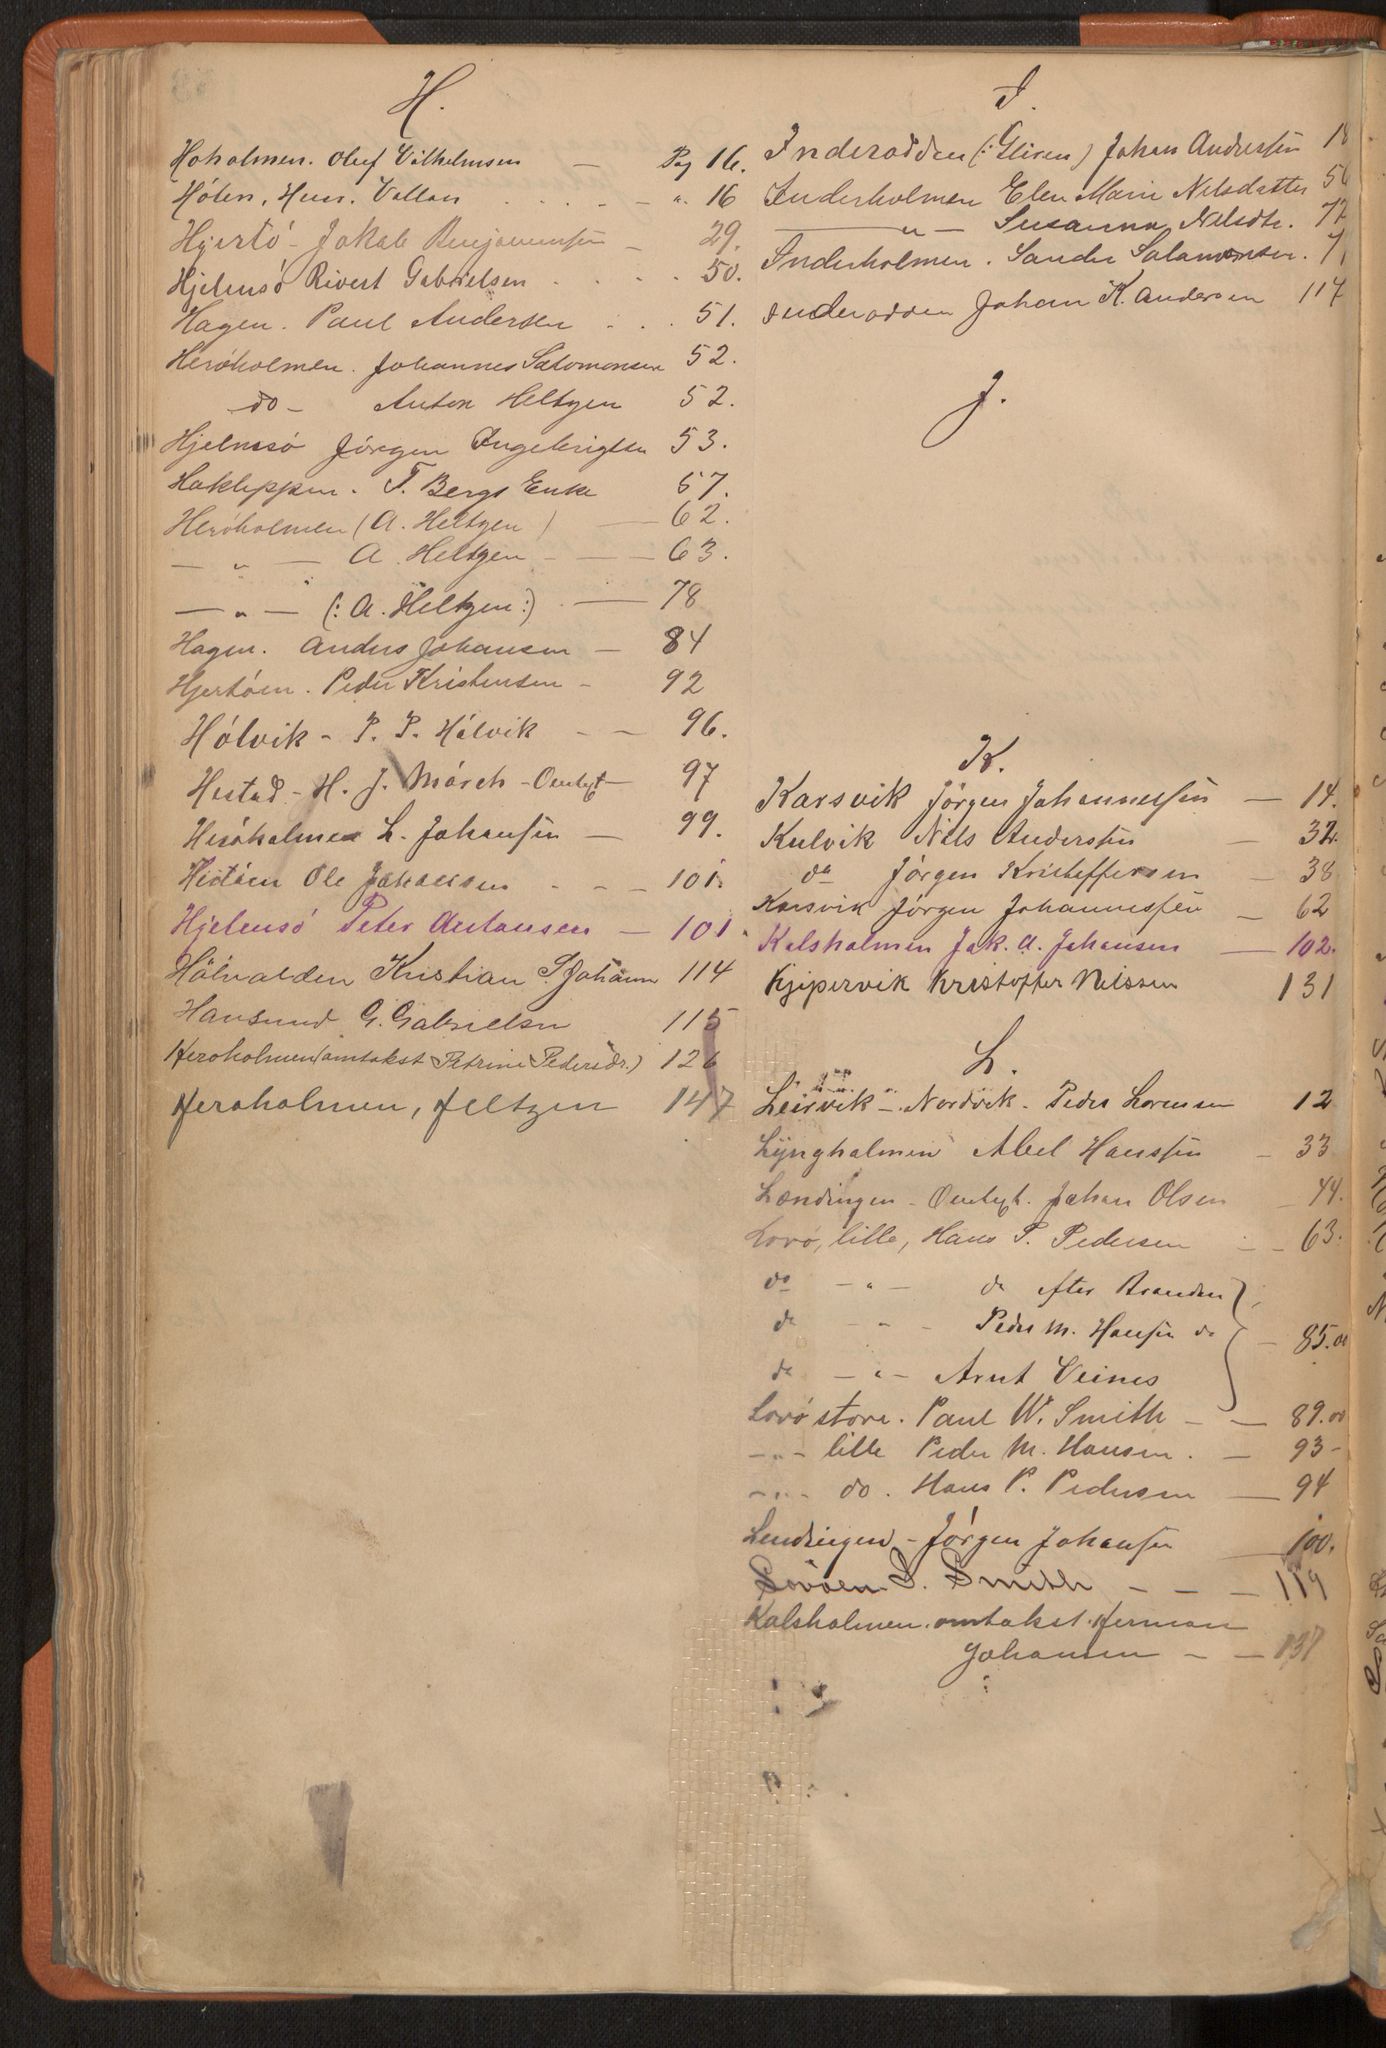 H.
Hoholmen. Oluf Vilhelmsen — Pag 16.
Höten, Hem. Vollan . . . . - " 16
Hjertö - Jakob Benjaminsen - 29.
Hjelmsö Rivert Gabrielsen . . . 50.
Hagen. Paul Andersen . . . 51.
Heröholmen. Johannes Salomonsen 52.
do - Anton Heltzen 52.
Hjelmsö Jörgen Ingebrigtsen 53.
Hakleppen. T. Bergs Enke 57.
Heröholmen (A. Heltzen) — 62.
— " — A. Heltzen - — 63.
— " — (: A. Heltzen :) — 78
Hagen. Anders Johansen — 84
Hjertöen. Peder Kristensen - 92
Hölvik - P. P. Hölvik - — 96.
Hestad - H. J. Mörch - Omtaxt — 97
Heröholmen L. Johansen — 99.
Ole Johansen - - - 101.
Hjelmsö Peter Antonsen — 101.
Kristian S. Johann 114
Hansund G. Gabrielsen 115
Heroholmen (omtakst Petrine Pedersdr.) 126
Heroholmen, Heltzen 147
I.
Inderodden (: Gliren) Johan Andersen 18
Inderholmen Elen Marie Nelsdatter 56
— " — Susanna Nelsdtr. 72
Inderholmen. Sander Salamonsen. 71
Inderodden Johan K. Andersen 117
J.
K.
Karsvik Jörgen Johannessen — 14.
Kulvik Nils Anderssen — 32.
do Jörgen Kristoffersen — 38
Karsvik Jörgen Johannessen — 62
Kalsholmen Jak. A. Johansen — 102.
Kjipervik Kristoffer Nilssen 131
L.
Leirvik - Nordvik - Peder Lorensen 12
Lyngholmen Abel Hanssen - 33
Lændingen - Omtaxt. Johan Olsen - 44.
Lovö, lille, Hans P. Pedersen - - 63.
do - " - do efter Branden
do - " - Peder M. Hansen do — 85.00
do - " - Arnt Veines
Lovö store. Paul W. Smith - — 89.00
- " - lille Peder M. Hansen. — 93 -
- " - do. Hans P. Pedersen — 94
Lendingen - Jörgen Johansen — 100.
Lovöen P. Smith - — - 119
Kalsholmen. omtakst. Herman
Johansen - — 137